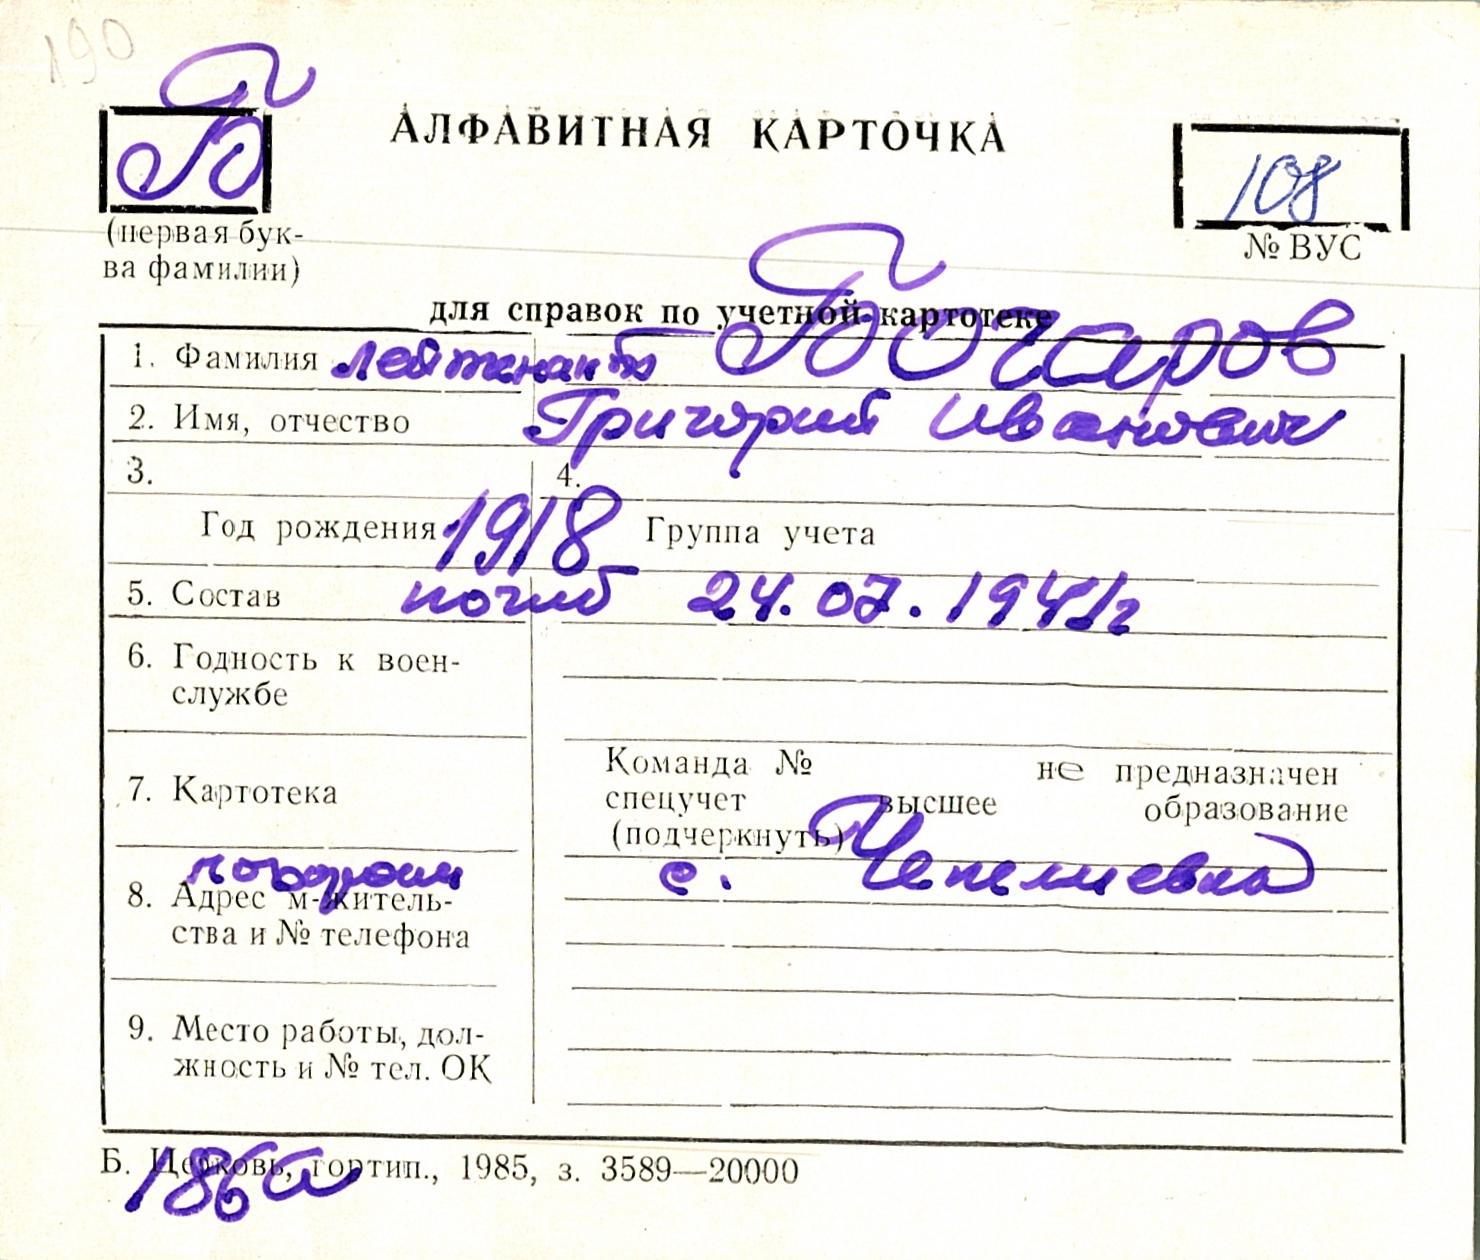 190
Б
АЛФАВИТНАЯ КАРТОЧКА
108
(первая бук-
ва фамилии)
№ ВУС
для справок по учетной картотеке
1. Фамилия лейтенант Бочаров
2. Имя, отчество Григорий Иванович
3. 4.
Год рождения 1918 Группа учета
5. Состав погиб 24.07.1941г
6. Годность к воен-
службе
Команда № не предназначен
7. Картотека спецучет высшее образование
(подчеркнуть)
похорон с. Чепелиевка
8. Адрес м-житель-
ства и № телефона
9. Место работы, дол-
жность и № тел. ОК
Б. Церковь, гортип., 1985, з. 3589—20000
186а